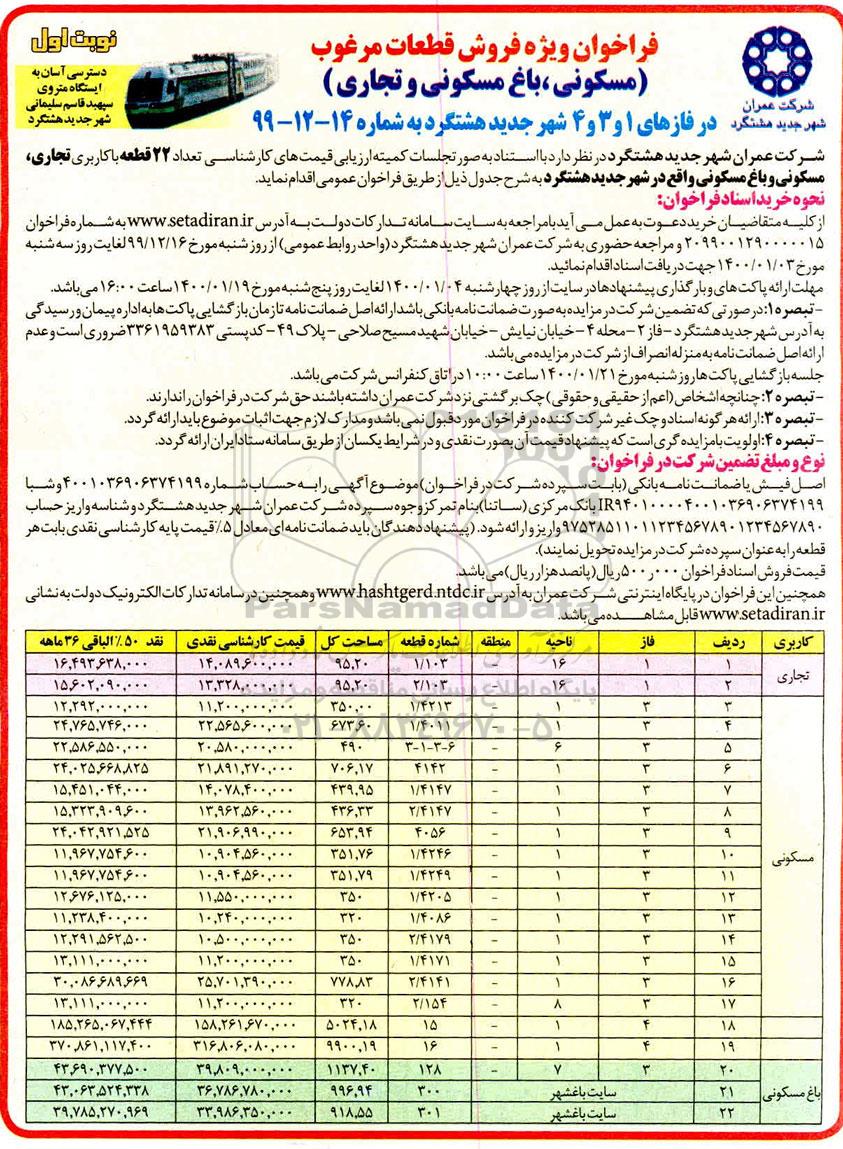 نوبت اول
دسترسی آسان به
ایستگاه متروی
سپهبد قاسم سلیمانی
شهر جدید هشتگرد
شرکت عمران
شهر جدید هشتگرد
فراخوان ویژه فروش قطعات مرغوب
(مسکونی، باغ مسکونی و تجاری)
در فازهای ۱ و ۳ و ۴ شهر جدید هشتگرد به شماره ۱۴-۱۲-۹۹
شرکت عمران شهر جدید هشتگرد در نظر دارد با استناد به صورتجلسات کمیته ارزیابی قیمت های کارشناسی تعداد ۲۲ قطعه با کاربری تجاری،
مسکونی و باغ مسکونی واقع در شهر جدید هشتگرد به شرح جدول ذیل از طریق فراخوان عمومی اقدام نماید.
نحوه خرید اسناد فراخوان:
از کلیه متقاضیان خرید دعوت به عمل می آید با مراجعه به سایت سامانه تدارکات دولت به آدرس www.setadiran.ir به شماره فراخوان
۲۰۹۹۰۰۱۲۹۰۰۰۰۰۱۵ و مراجعه حضوری به شرکت عمران شهر جدید هشتگرد (واحد روابط عمومی) از روز شنبه مورخ ۹۹/۱۲/۱۶ لغایت روز سه شنبه
مورخ ۱۴۰۰/۰۱/۰۳ جهت دریافت اسناد اقدام نمائید.
مهلت ارائه پاکت های و بارگذاری پیشنهادها در سایت از روز چهارشنبه ۱۴۰۰/۰۱/۰۴ لغایت روز پنج شنبه مورخ ۱۴۰۰/۰۱/۱۹ ساعت ۱۶:۰۰ می باشد.
- تبصره ۱: در صورتی که تضمین شرکت در مزایده به صورت ضمانت نامه بانکی باشد ارائه اصل ضمانت نامه تا زمان بازگشایی پاکت ها به اداره پیمان و رسیدگی
به آدرس شهر جدید هشتگرد - فاز ۲ - محله ۴ - خیابان نیایش - خیابان شهید مسیح صلاحی - پلاک ۴۹ - کدپستی ۳۳۶۱۹۵۹۳۸۳ ضروری است و عدم
ارائه اصل ضمانت نامه به منزله انصراف از شرکت در مزایده می باشد.
جلسه بازگشایی پاکت ها روز شنبه مورخ ۱۴۰۰/۰۱/۲۱ ساعت ۱۰:۰۰ در اتاق کنفرانس شرکت می باشد.
- تبصره ۲: چنانچه اشخاص (اعم از حقیقی و حقوقی) چک برگشتی نزد شرکت عمران داشته باشند حق شرکت در فراخوان را ندارند.
- تبصره ۳: ارائه هر گونه اسناد و چک غیر شرکت کننده در فراخوان مورد قبول نمی باشد و مدارک لازم جهت اثبات موضوع باید ارائه گردد.
- تبصره ۴: اولویت با مزایده گری است که پیشنهاد قیمت آن بصورت نقدی و در شرایط یکسان از طریق سامانه ستاد ایران ارائه گردد.
نوع و مبلغ تضمین شرکت در فراخوان:
اصل فیش یا ضمانت نامه بانکی (بابت سپرده شرکت در فراخوان) موضوع آگهی را به حساب شماره ۴۰۰۱۰۳۶۹۰۶۳۷۴۱۹۹ و شبا
IR۹۴۰۱۰۰۰۰۴۰۰۱۰۳۶۹۰۶۳۷۴۱۹۹ بانک مرکزی (ساتنا) بنام تمرکز وجوه سپرده شرکت عمران شهر جدید هشتگرد و شناسه واریز حساب
۹۷۵۳۸۵۱۱۰۱۱۲۳۴۵۶۷۸۹۰۱۲۳۴۵۶۷۸۹۰ واریز و ارائه شود. (پیشنهاد دهندگان باید ضمانت نامه ای معادل ۵٪ قیمت پایه کارشناسی نقدی بابت هر
قطعه را به عنوان سپرده شرکت در مزایده تحویل نمایند).
قیمت فروش اسناد فراخوان ۵۰۰٫۰۰۰ ریال (پانصد هزار ریال) می باشد.
همچنین این فراخوان در پایگاه اینترنتی شرکت عمران به آدرس www.hashtgerd.ntdc.ir و همچنین در سامانه تدارکات الکترونیک دولت به نشانی
www.setadiran.ir قابل مشاهده می باشد.
ParsNamadData
پایگاه اطلاع رسانی مناقصه و مزایده
۰۲۱-۸۸۳۴۹۶۷۰-۵
کاربری ردیف فاز ناحیه منطقه شماره قطعه مساحت کل قیمت کارشناسی نقدی نقد ۵۰٪ الباقی ۳۶ ماهه
تجاری ۱ ۱ ۱۶ - ۱/۱۰۳ ۹۵,۲۰ ۱۴,۰۸۹,۶۰۰,۰۰۰ ۱۶,۴۹۳,۶۳۸,۰۰۰
۲ ۱ ۱۶ - ۲/۱۰۳ ۹۵,۲۰ ۱۳,۳۲۸,۰۰۰,۰۰۰ ۱۵,۶۰۲,۰۹۰,۰۰۰
مسکونی
۳ ۳ ۱ - ۱/۴۲۱۳ ۳۵۰,۰۰ ۱۱,۲۰۰,۰۰۰,۰۰۰ ۱۲,۲۹۲,۰۰۰,۰۰۰
۴ ۳ ۱ - ۱/۴۰۹۱ ۶۷۳,۶۰ ۲۲,۵۶۵,۶۰۰,۰۰۰ ۲۴,۷۶۵,۷۴۶,۰۰۰
۵ ۳ ۶ - ۳-۱-۳-۶ ۴۹۰ ۲۰,۵۸۰,۰۰۰,۰۰۰ ۲۲,۵۸۶,۵۵۰,۰۰۰
۶ ۳ ۱ - ۴۱۴۲ ۷۰۶,۱۷ ۲۱,۸۹۱,۲۷۰,۰۰۰ ۲۴,۰۲۵,۶۶۸,۸۲۵
۷ ۳ ۱ - ۱/۴۱۴۷ ۴۳۹,۹۵ ۱۴,۰۷۸,۴۰۰,۰۰۰ ۱۵,۴۵۱,۰۴۴,۰۰۰
۸ ۳ ۱ - ۲/۴۱۴۷ ۴۳۶,۳۳ ۱۳,۹۶۲,۵۶۰,۰۰۰ ۱۵,۳۲۳,۹۰۹,۶۰۰
۹ ۳ ۱ - ۴۰۵۶ ۶۵۳,۹۴ ۲۱,۹۰۶,۹۹۰,۰۰۰ ۲۴,۰۴۲,۹۲۱,۵۲۵
۱۰ ۳ ۱ - ۱/۴۲۴۶ ۳۵۱,۷۶ ۱۰,۹۰۴,۵۶۰,۰۰۰ ۱۱,۹۶۷,۷۵۴,۶۰۰
۱۱ ۳ ۱ - ۱/۴۲۴۹ ۳۵۱,۷۹ ۱۰,۹۰۴,۵۶۰,۰۰۰ ۱۱,۹۶۷,۷۵۴,۶۰۰
۱۲ ۳ ۱ - ۱/۴۲۰۵ ۳۵۰ ۱۱,۵۵۰,۰۰۰,۰۰۰ ۱۲,۶۷۶,۱۲۵,۰۰۰
۱۳ ۳ ۱ - ۱/۴۰۸۶ ۳۲۰ ۱۰,۲۴۰,۰۰۰,۰۰۰ ۱۱,۲۳۸,۴۰۰,۰۰۰
۱۴ ۳ ۱ - ۲/۴۱۷۹ ۳۵۰ ۱۰,۵۰۰,۰۰۰,۰۰۰ ۱۲,۲۹۱,۵۶۲,۵۰۰
۱۵ ۳ ۱ - ۱/۴۱۷۱ ۳۵۰ ۱۱,۲۰۰,۰۰۰,۰۰۰ ۱۳,۱۱۱,۰۰۰,۰۰۰
۱۶ ۳ ۱ - ۲/۴۱۴۱ ۷۷۸,۸۳ ۲۵,۷۰۱,۳۹۰,۰۰۰ ۳۰,۰۸۶,۶۸۹,۶۶۹
۱۷ ۳ ۸ - ۲/۱۵۴ ۳۲۰ ۱۱,۲۰۰,۰۰۰,۰۰۰ ۱۳,۱۱۱,۰۰۰,۰۰۰
۱۸ ۴ ۱ - ۱۵ ۵۰۲۴,۱۸ ۱۵۸,۲۶۱,۶۷۰,۰۰۰ ۱۸۵,۲۶۵,۰۶۷,۴۴۴
۱۹ ۴ ۱ - ۱۶ ۹۹۰۰,۱۹ ۳۱۶,۸۰۶,۰۸۰,۰۰۰ ۳۷۰,۸۶۱,۱۱۷,۴۰۰
باغ مسکونی ۲۰ ۳ ۷ - ۱۲۸ ۱۱۳۷,۴۰ ۳۹,۸۰۹,۰۰۰,۰۰۰ ۴۳,۶۹۰,۳۷۷,۵۰۰
۲۱ سایت باغشهر ۳۰۰ ۹۹۶,۹۴ ۳۶,۷۸۶,۷۸۰,۰۰۰ ۴۳,۰۶۳,۵۲۴,۳۳۸
۲۲ سایت باغشهر ۳۰۱ ۹۱۸,۵۵ ۳۳,۹۸۶,۳۵۰,۰۰۰ ۳۹,۷۸۵,۲۷۰,۹۶۹